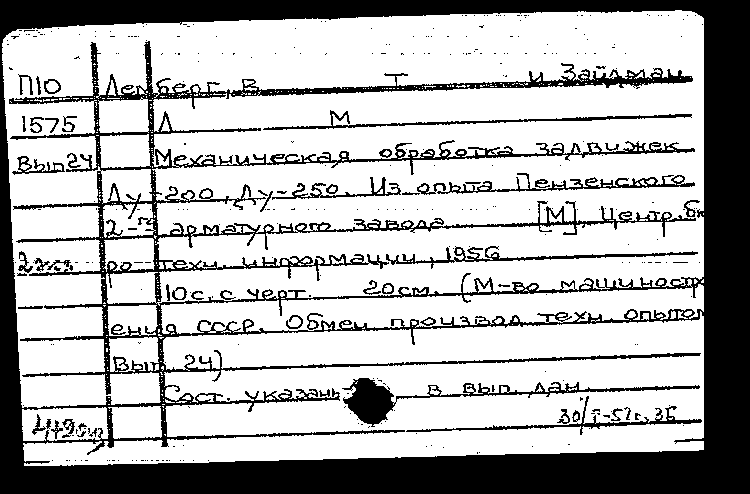 П10 Лемберг, В Т и Зайдман
1575 Л М
Вып 24 Механическая обработка задвижек
Ду-200, Ду-250. Из опыта Пензенского
2-го арматурного завода [М], Центр. бю
2 экз ро техн. информации, 1956
10 с. с черт. 20 см. (М-во машиностро
ения СССР. Обмен производ техн. опытом
Вып. 24)
Сост. указаны в вып. дан.
30/I-57г.